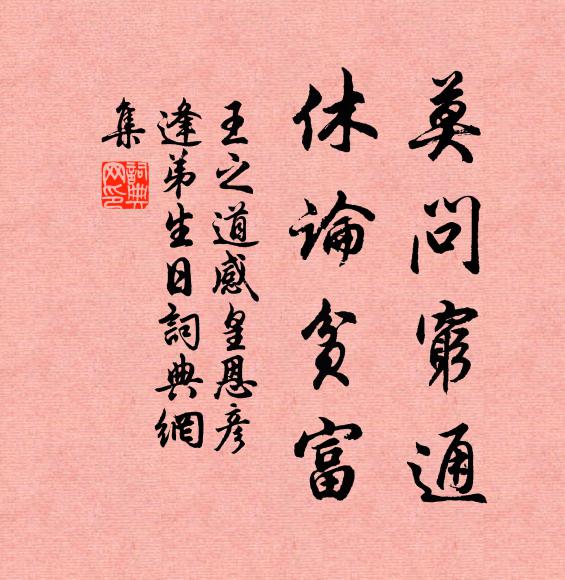 莫問窮通
休論貧富
王之道感皇恩彦
逢弟生日詞典網
集
詞典
网印